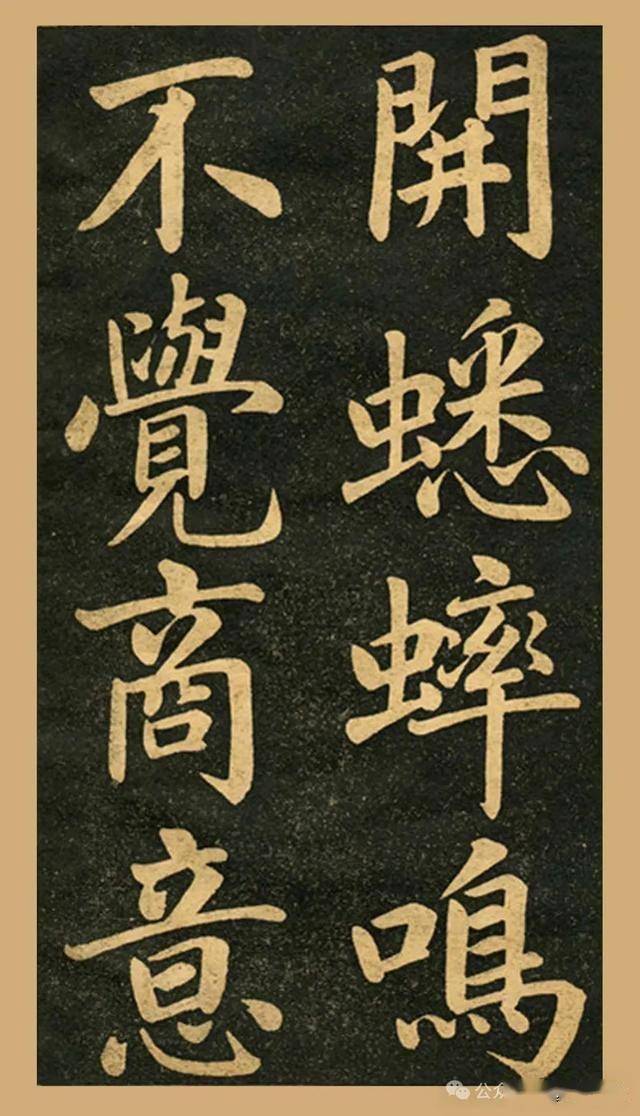 開蟋蟀鳴
不覺商意
公众